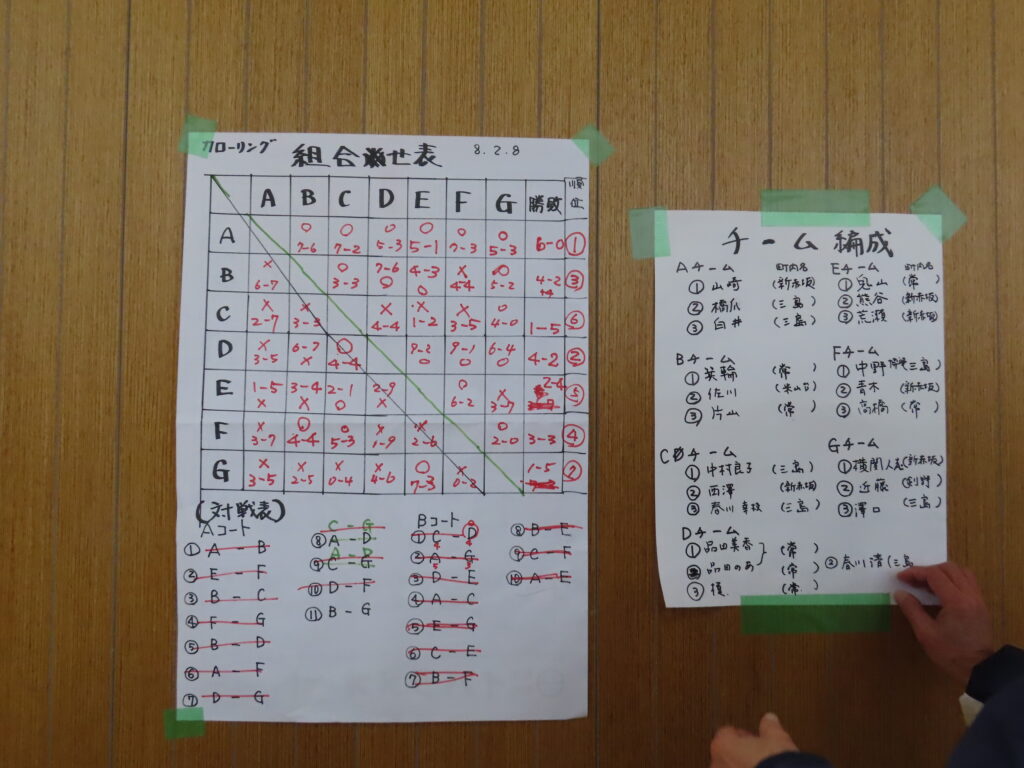 カローリング 組合わせ表 8.2.8
A B C D E F G 勝敗 順位
A ○ ○ ○ ○ ○ ○
7-6 7-2 5-3 5-1 7-3 5-3 6-0 ①
B × ○ 7-6 4-3 × ○
6-7 3-3 ○ ○ 4-4 5-2 4-2 ③
C × × × × × ○
2-7 3-3 4-4 1-2 3-5 4-0 1-5 ⑥
D × 6-7 ○ 9-2 9-1 6-4
3-5 × 4-4 ○ ○ ○ 4-2 ②
E 1-5 3-4 2-1 2-9 ○ × 2-4
× × ○ × 6-2 3-7 ⑤
F × ○ ○ × × ○
3-7 4-4 5-3 1-9 2-6 2-0 3-3 ④
G × × × × ○ × 1-5
3-5 2-5 0-4 4-6 7-3
(対戦表)
Aコート
① A - B
② E - F
③ B - C
④ F - G
⑤ B - D
⑥ A - F
⑦ D - G
C - G
⑧ A - D
A - D
⑨ C - G
⑩ D - F
⑪ B - G
Bコート
① C - D
② A - G
③ D - E
④ A - C
⑤ E - G
⑥ C - E
⑦ B - F
⑧ B - E
⑨ C - F
⑩ A - E
チーム 編成
Aチーム 町内名
① 山崎 (新赤坂)
② 橋爪 (三島)
③ 白井 (三島)
Bチーム
① 箕輪 (常)
② 佐川
③ 片山 (常)
Cチーム
① 中村良子 (三島)
② 西澤 (新赤坂)
③ 春川幸枝 (三島)
Dチーム
① 品田美香 (常)
品田のあ (常)
③ 榎 (常)
Eチーム 町内名
① 丸山 (常)
② 熊谷 (新赤坂)
③ 荒瀬 (新赤坂)
Fチーム
① 中野 (三島)
② 青木 (新赤坂)
③ 高橋 (常)
Gチーム
① 横関 (新赤坂)
② 近藤
③ 澤口 (三島)
② 春川清 (三島